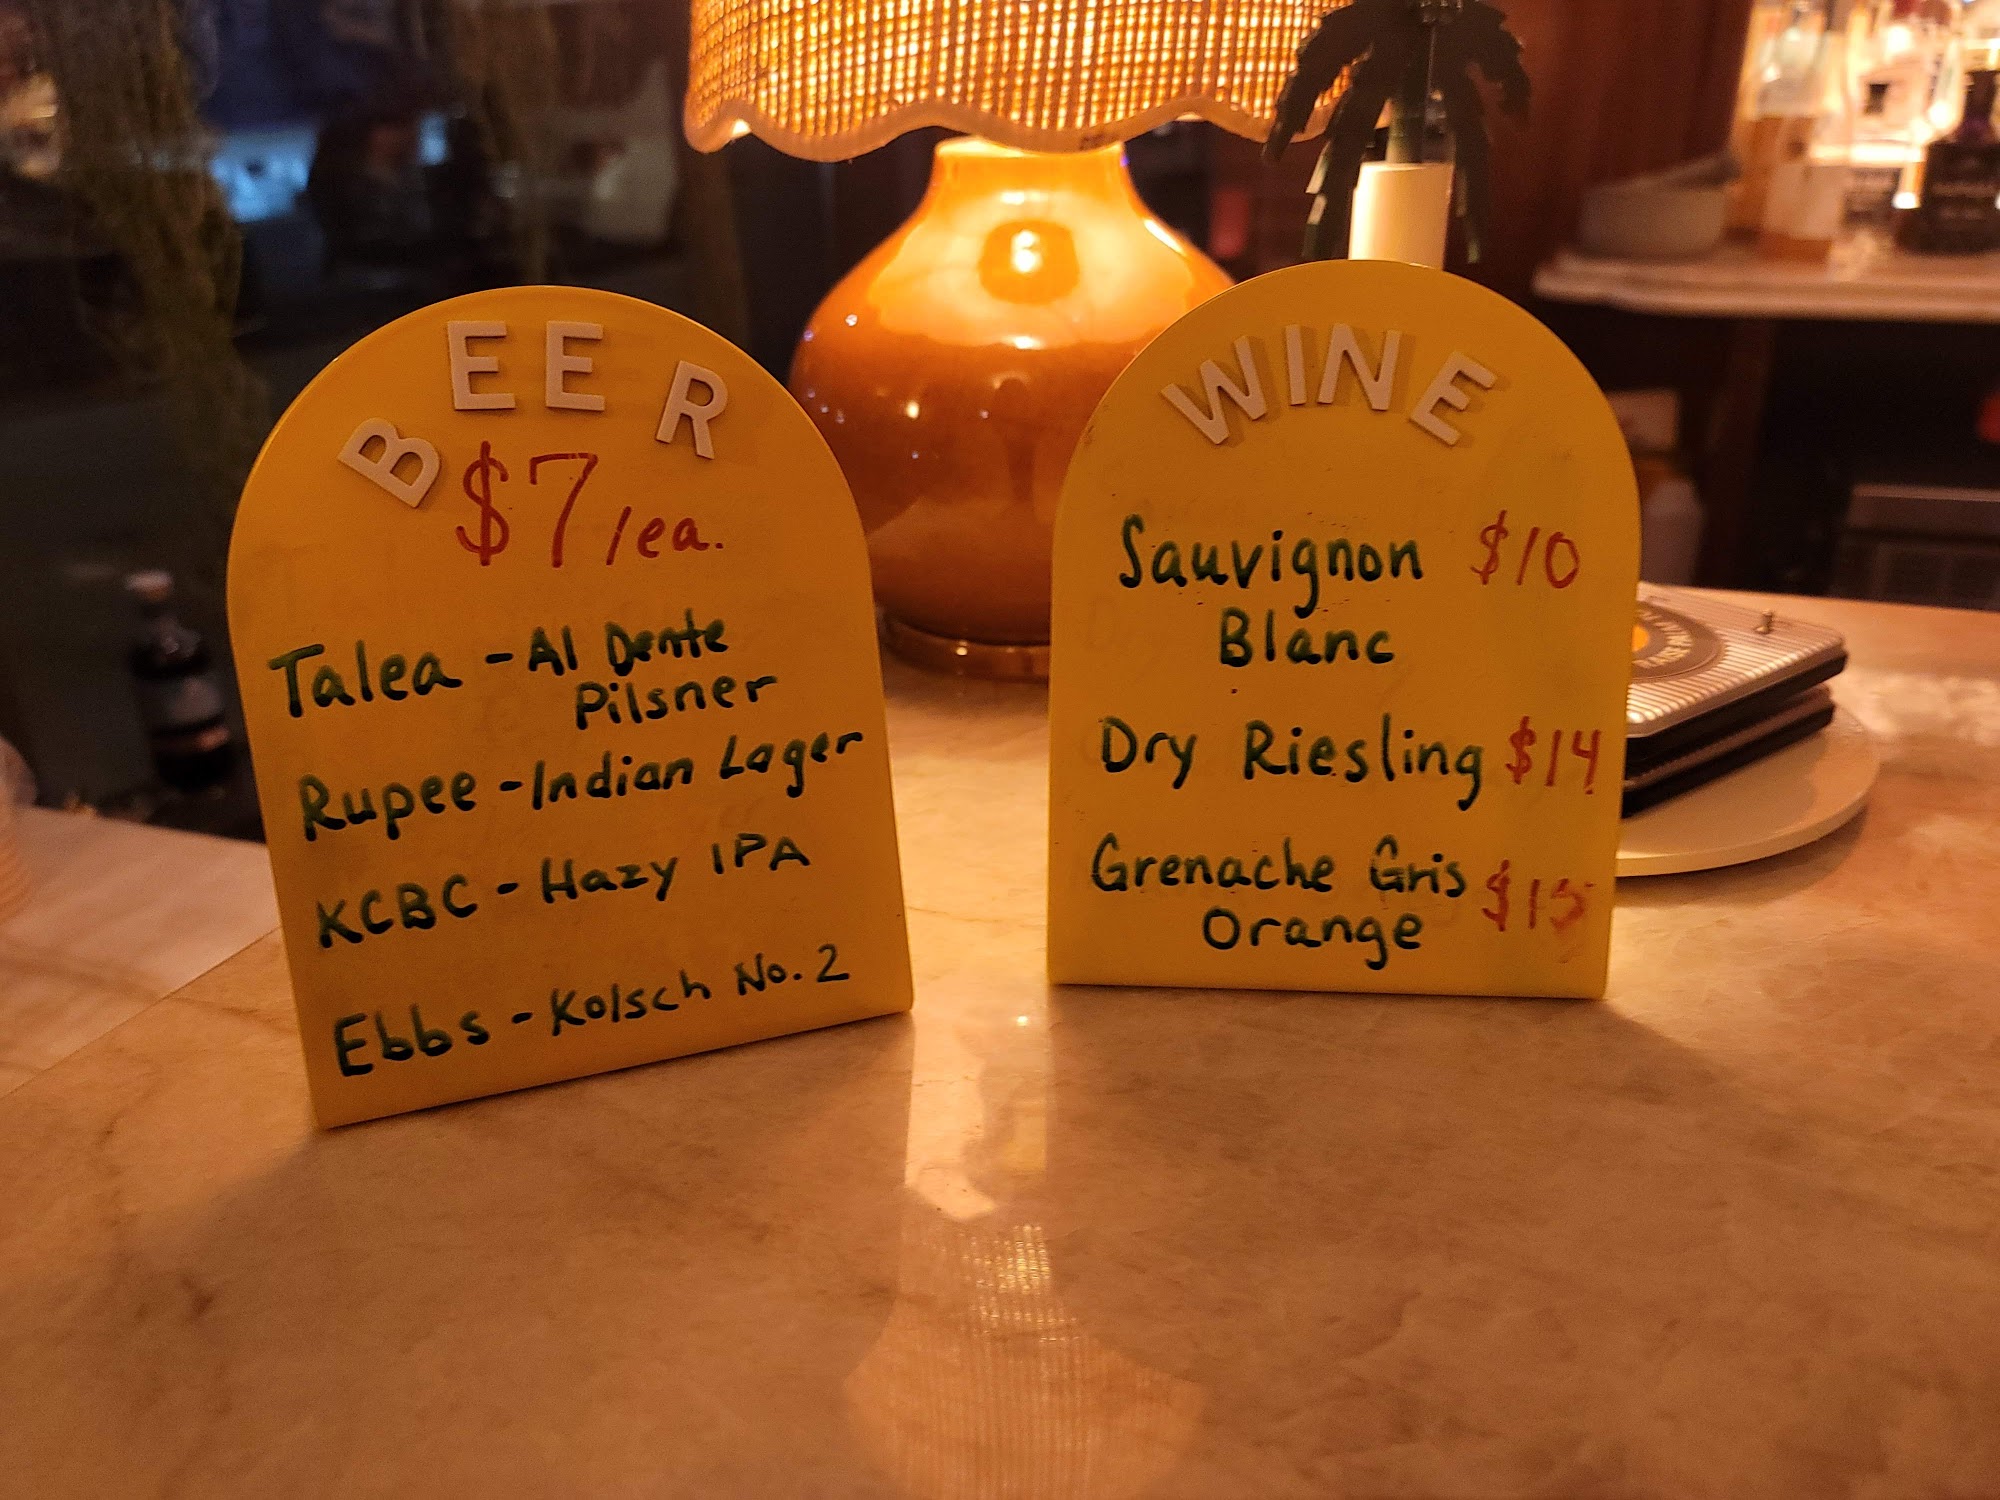 BEER
$7/ea.
Talea - Al Dente
Pilsner
Rupee - Indian Lager
KCBC - Hazy IPA
Ebbs - Kolsch No. 2
WINE
Sauvignon $10
Blanc
Dry Riesling $14
Grenache Gris $15
Orange